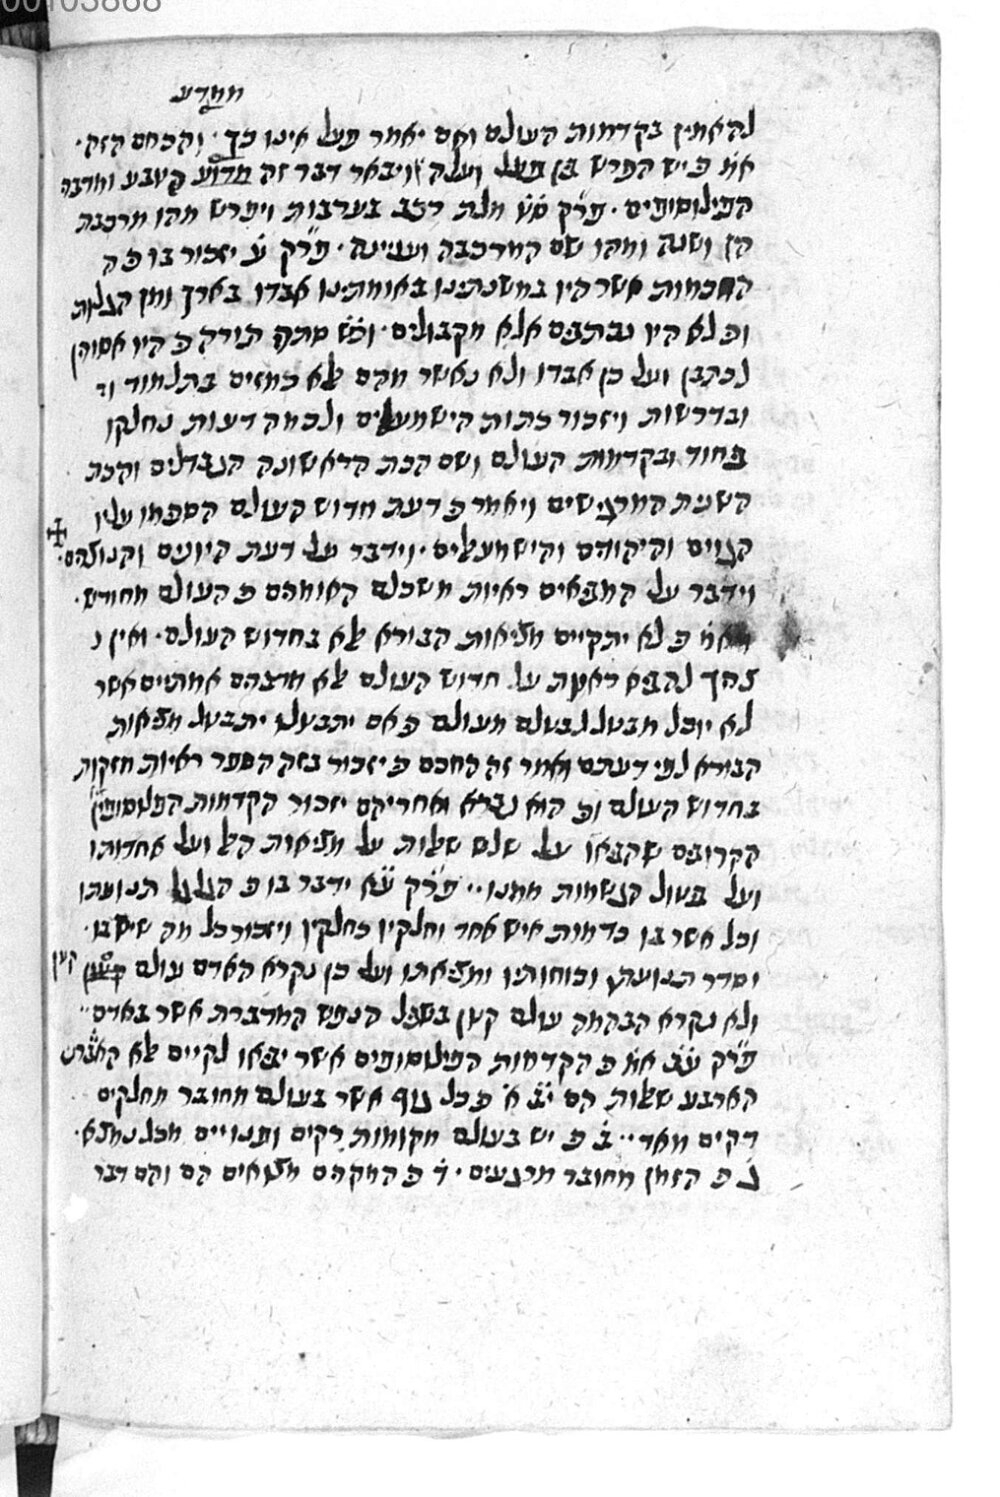 00103868
ממדע
להאמין בקדמות העולם ואם יאמר פעל אינו כך · והכחם הזה ·
אמ׳ כי יש הפרש בין פועל ועלה ויבאר דבר זה מדוע הטבע ומרבה
הפילוסופים · פרק ס״ט מלת רכב בערבות ויפרש מהו מרכבת
הן ושנה ומהו שם המרכבה ועניינה · פרק ע׳ יזכור בו כי ה
החכמות אשר היו במשנתינו באומתינו אבדו בארך זמן הגלות
וכי לא היו נכתבים אלא מקבולים · וכ״ש סתרי תורה כי היו אסורין
לכתבן ועל כן אבדו ולא נאשר מהם אלא רמזים בתלמוד
ובדרשות ויזכור כתות הישמעאלים ולכמה דעות נחלקו
ביחוד ובקדמות העולם ושם הכת הראשונה הנבדלים והכת
השנית המרגישים ויאמר כי דעת חדוש העולם הסכמו עליו
הגוים והיהודים והישמעאלים · וידבר על דעת היונים
וידבר על המביאים ראיות משכלם האומרים כי העולם מחודש ·
ואמ׳ כי לא יתקיים מציאות הבורא אלא בחדוש העולם · ואין נ
צריך להביא ראיות על חדוש העולם אלא מדברים אמתיים אשר
לא יוכל מבטל לבטלם מעולם כי אם יתבטלו יתבטל מציאות
הבורא לפי דעתם ואמר זה החכם כי יזכור בזה הספר ראיות חזקות
בחדוש העולם וכי הוא נברא ואחריהם יזכור הקדמות הפילוסופים
הקרובים שהביאו על שלש שאלות על מציאות האל ועל אחדותו
ועל בטול הגשמות ממנו ·· פרק ע״א ידבר בו כי הגלגל תנועתו
וכל אשר בו כדמות איש אחד וחלקיו כחלקיו ויזכור כל מה שיש בו ·
וסדר תנועתו וכוחותיו ומציאותו ועל כן נקרא האדם עולם קטן
ולא נקרא הבהמה עולם קטן בשביל הנפש המדברת אשר באדם ··
פרק ע״ב אמ׳ כי הקדמות הפילוסופים אשר יביאו לקיים אלא
הארבע שאלות הם י״ב א׳ כי כל גוף אשר בעולם מחובר מחלקים
דקים מאד ·· ב׳ כי יש בעולם מקומות רקים ופנויים מכל נמצא ·
ג׳ כי הזמן מחובר מרגעים · ד׳ כי המקרים מצואים הם והם דבר